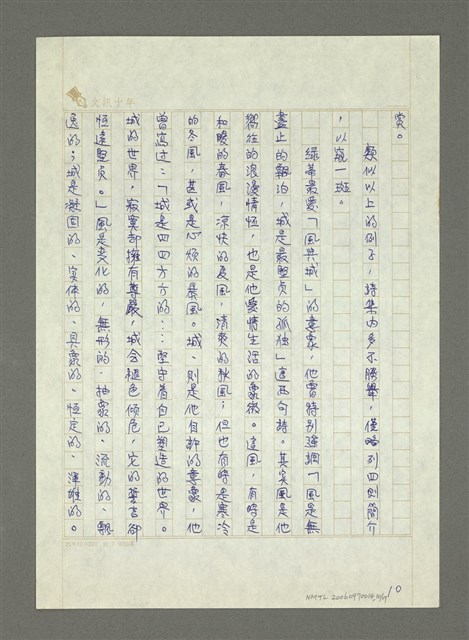 文訊十年
裳。
類似以上的例子，詩集內多不勝舉，僅略列四則簡介
，以窺一斑。
綠蒂最愛「風與城」的意象，他曾特別強調「風是無
盡止的飄泊，城是最堅貞的孤独」這两句詩。其实風是他
嚮往的浪漫情怀，也是他愛情生活的象徵。這風，有時是
和暖的春風，凉快的夏風，清爽的秋風；但也有時是寒冷
的冬風，甚或是心煩的暴風。城、則是他自許的意象，他
曾寫过：「城是四四方方的……堅守着自已塑造的世界。
城的世界，寂寞却擁有尊嚴，城会褪色傾危，它的誓言卻
恒遠堅贞。」風是变化的，無形的、抽象的、流動的、飄
逸的；城是凝固的、实体的、具象的、恒定的、渾雄的。
10
NMTL 20060970014